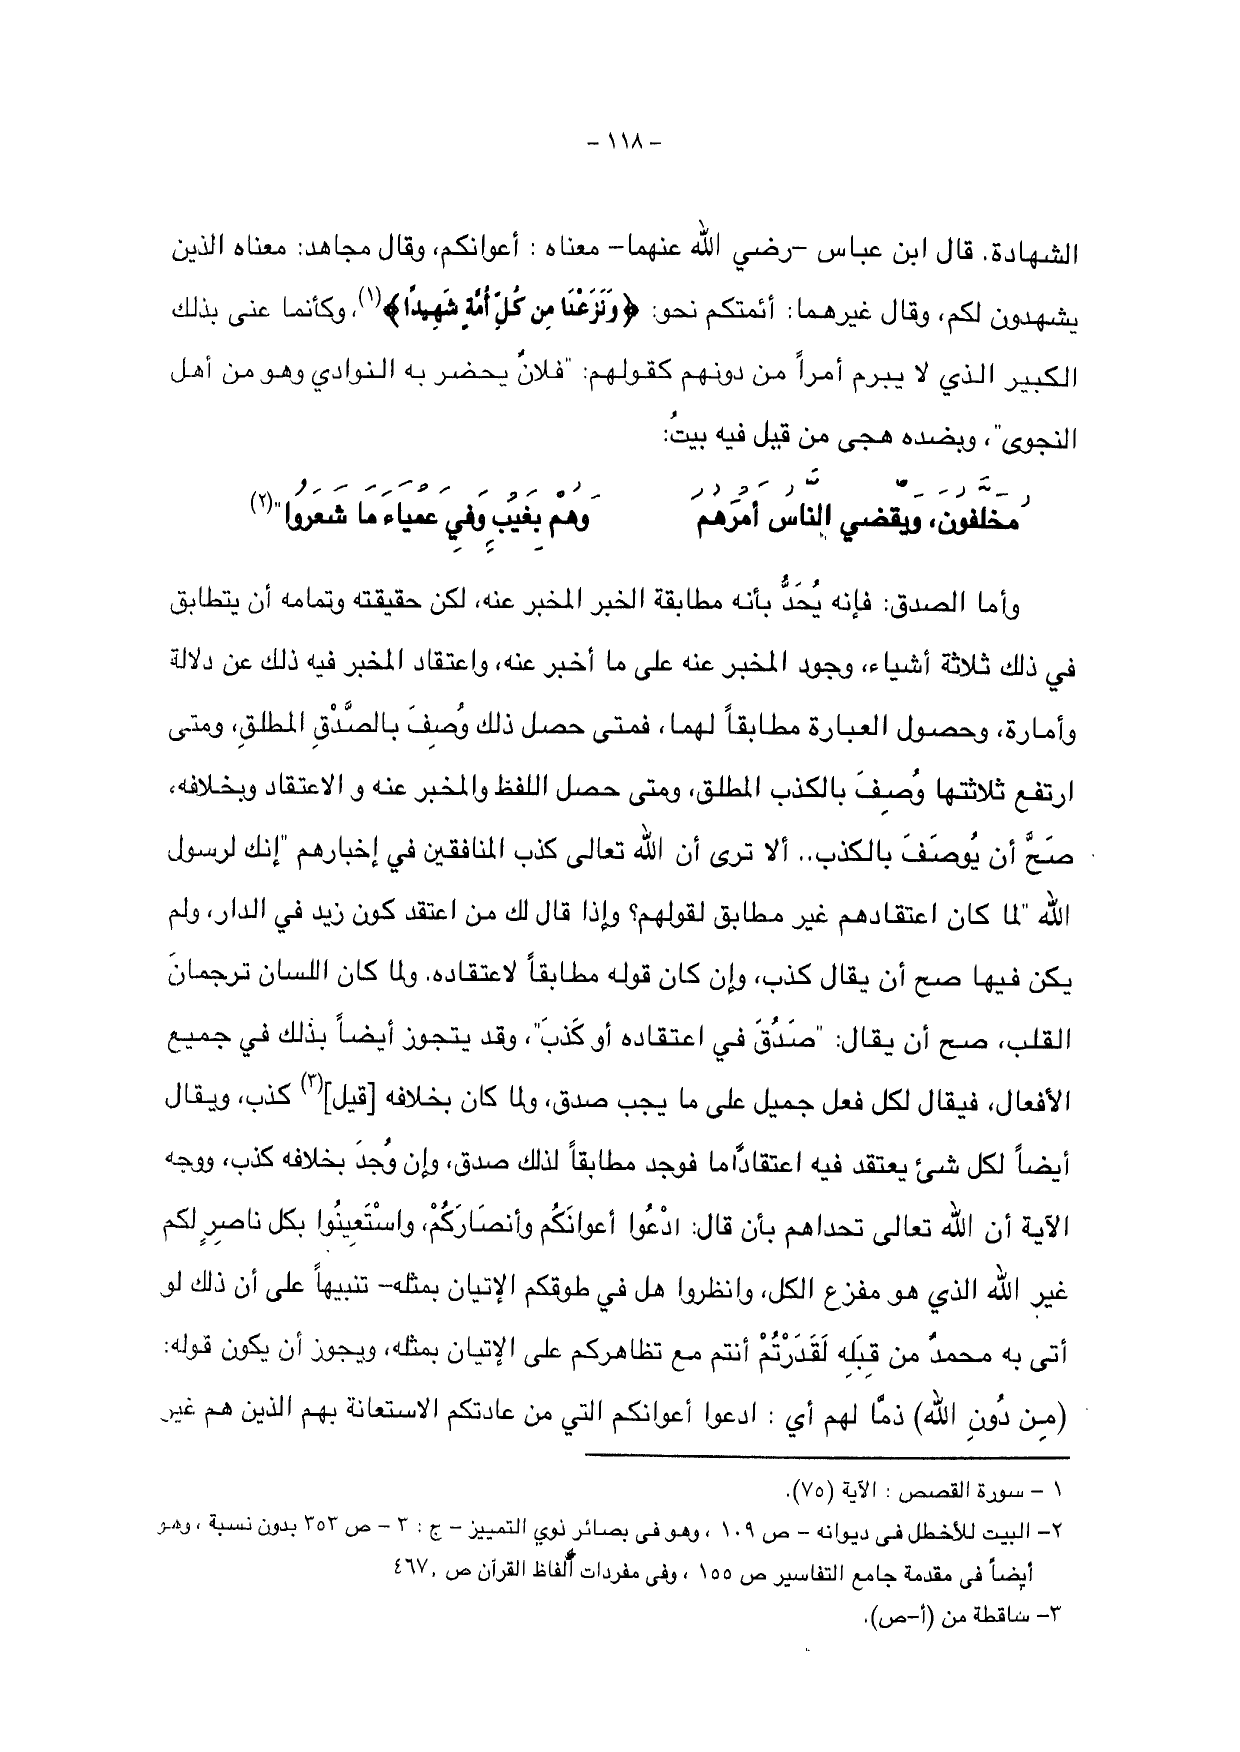 - ١١٨ -
الشهادة. قال ابن عباس -رضي الله عنهما- معناه : أعوانكم، وقال مجاهد: معناه الذين
يشهدون لكم، وقال غيرهما: أئمتكم نحو: ﴿وَنَزَعْنَا مِن كُلِّ أُمَّةٍ شَهِيدًا﴾(١)، وكأنما عنى بذلك
الكبير الذي لا يبرم أمراً من دونهم كقولهم: "فلانٌ يحضر به النوادي وهو من أهل
النجوى"، وبضده هجى من قيل فيه بيتُ:
مخلفون، ويقضي الناس أمرَهم وهم بغيبٍ وفي عمياء ما شعروا"(٢)
وأما الصدق: فإنه يُحَدُّ بأنه مطابقة الخبر المخبر عنه، لكن حقيقته وتمامه أن يتطابق
في ذلك ثلاثة أشياء، وجود المخبر عنه على ما أخبر عنه، واعتقاد المخبر فيه ذلك عن دلالة
وأمارة، وحصول العبارة مطابقاً لهما، فمتى حصل ذلك وُصِفَ بالصِّدْقِ المطلقِ، ومتى
ارتفع ثلاثتها وُصِفَ بالكذب المطلق، ومتى حصل اللفظ والمخبر عنه و الاعتقاد وبخلافه،
صَحَّ أن يُوصَفَ بالكذب.. ألا ترى أن الله تعالى كذب المنافقين في إخبارهم "إنك لرسول
الله "لما كان اعتقادهم غير مطابق لقولهم؟ وإذا قال لك من اعتقد كون زيد في الدار، ولم
يكن فيها صح أن يقال كذب، وإن كان قوله مطابقاً لاعتقاده. ولما كان اللسان ترجمانَ
القلب، صح أن يقال: "صَدُقَ في اعتقاده أو كَذبَ"، وقد يتجوز أيضاً بذلك في جميع
الأفعال، فيقال لكل فعل جميل على ما يجب صدق، ولما كان بخلافه [قيل](٣) كذب، ويقال
أيضاً لكل شئ يعتقد فيه اعتقادًاما فوجد مطابقاً لذلك صدق، وإن وُجدَ بخلافه كذب، ووجه
الآية أن الله تعالى تحداهم بأن قال: ادْعُوا أعوانَكُم وأنصَارَكُمْ، واسْتَعِينُوا بكل ناصرٍ لكم
غيرِ الله الذي هو مفزع الكل، وانظروا هل في طوقكم الإتيان بمثله- تنبيهاً على أن ذلك لو
أتى به محمدٌ من قِبَلِه لَقَدَرْتُمْ أنتم مع تظاهركم على الإتيان بمثله، ويجوز أن يكون قوله:
(مِن دُونِ الله) ذمًّا لهم أي : ادعوا أعوانكم التي من عادتكم الاستعانة بهم الذين هم غير
١ - سورة القصص : الآية (٧٥).
٢- البيت للأخطل فى ديوانه - ص ١٠٩ ، وهو فى بصائر نوي التمييز - ج : ٣ - ص ٣٥٣ بدون نسبة ، وهو
أيضاً فى مقدمة جامع التفاسير ص ١٥٥ ، وفى مفردات ألفاظ القرآن ص ٤٦٧.
٣- ساقطة من (أ-ص).